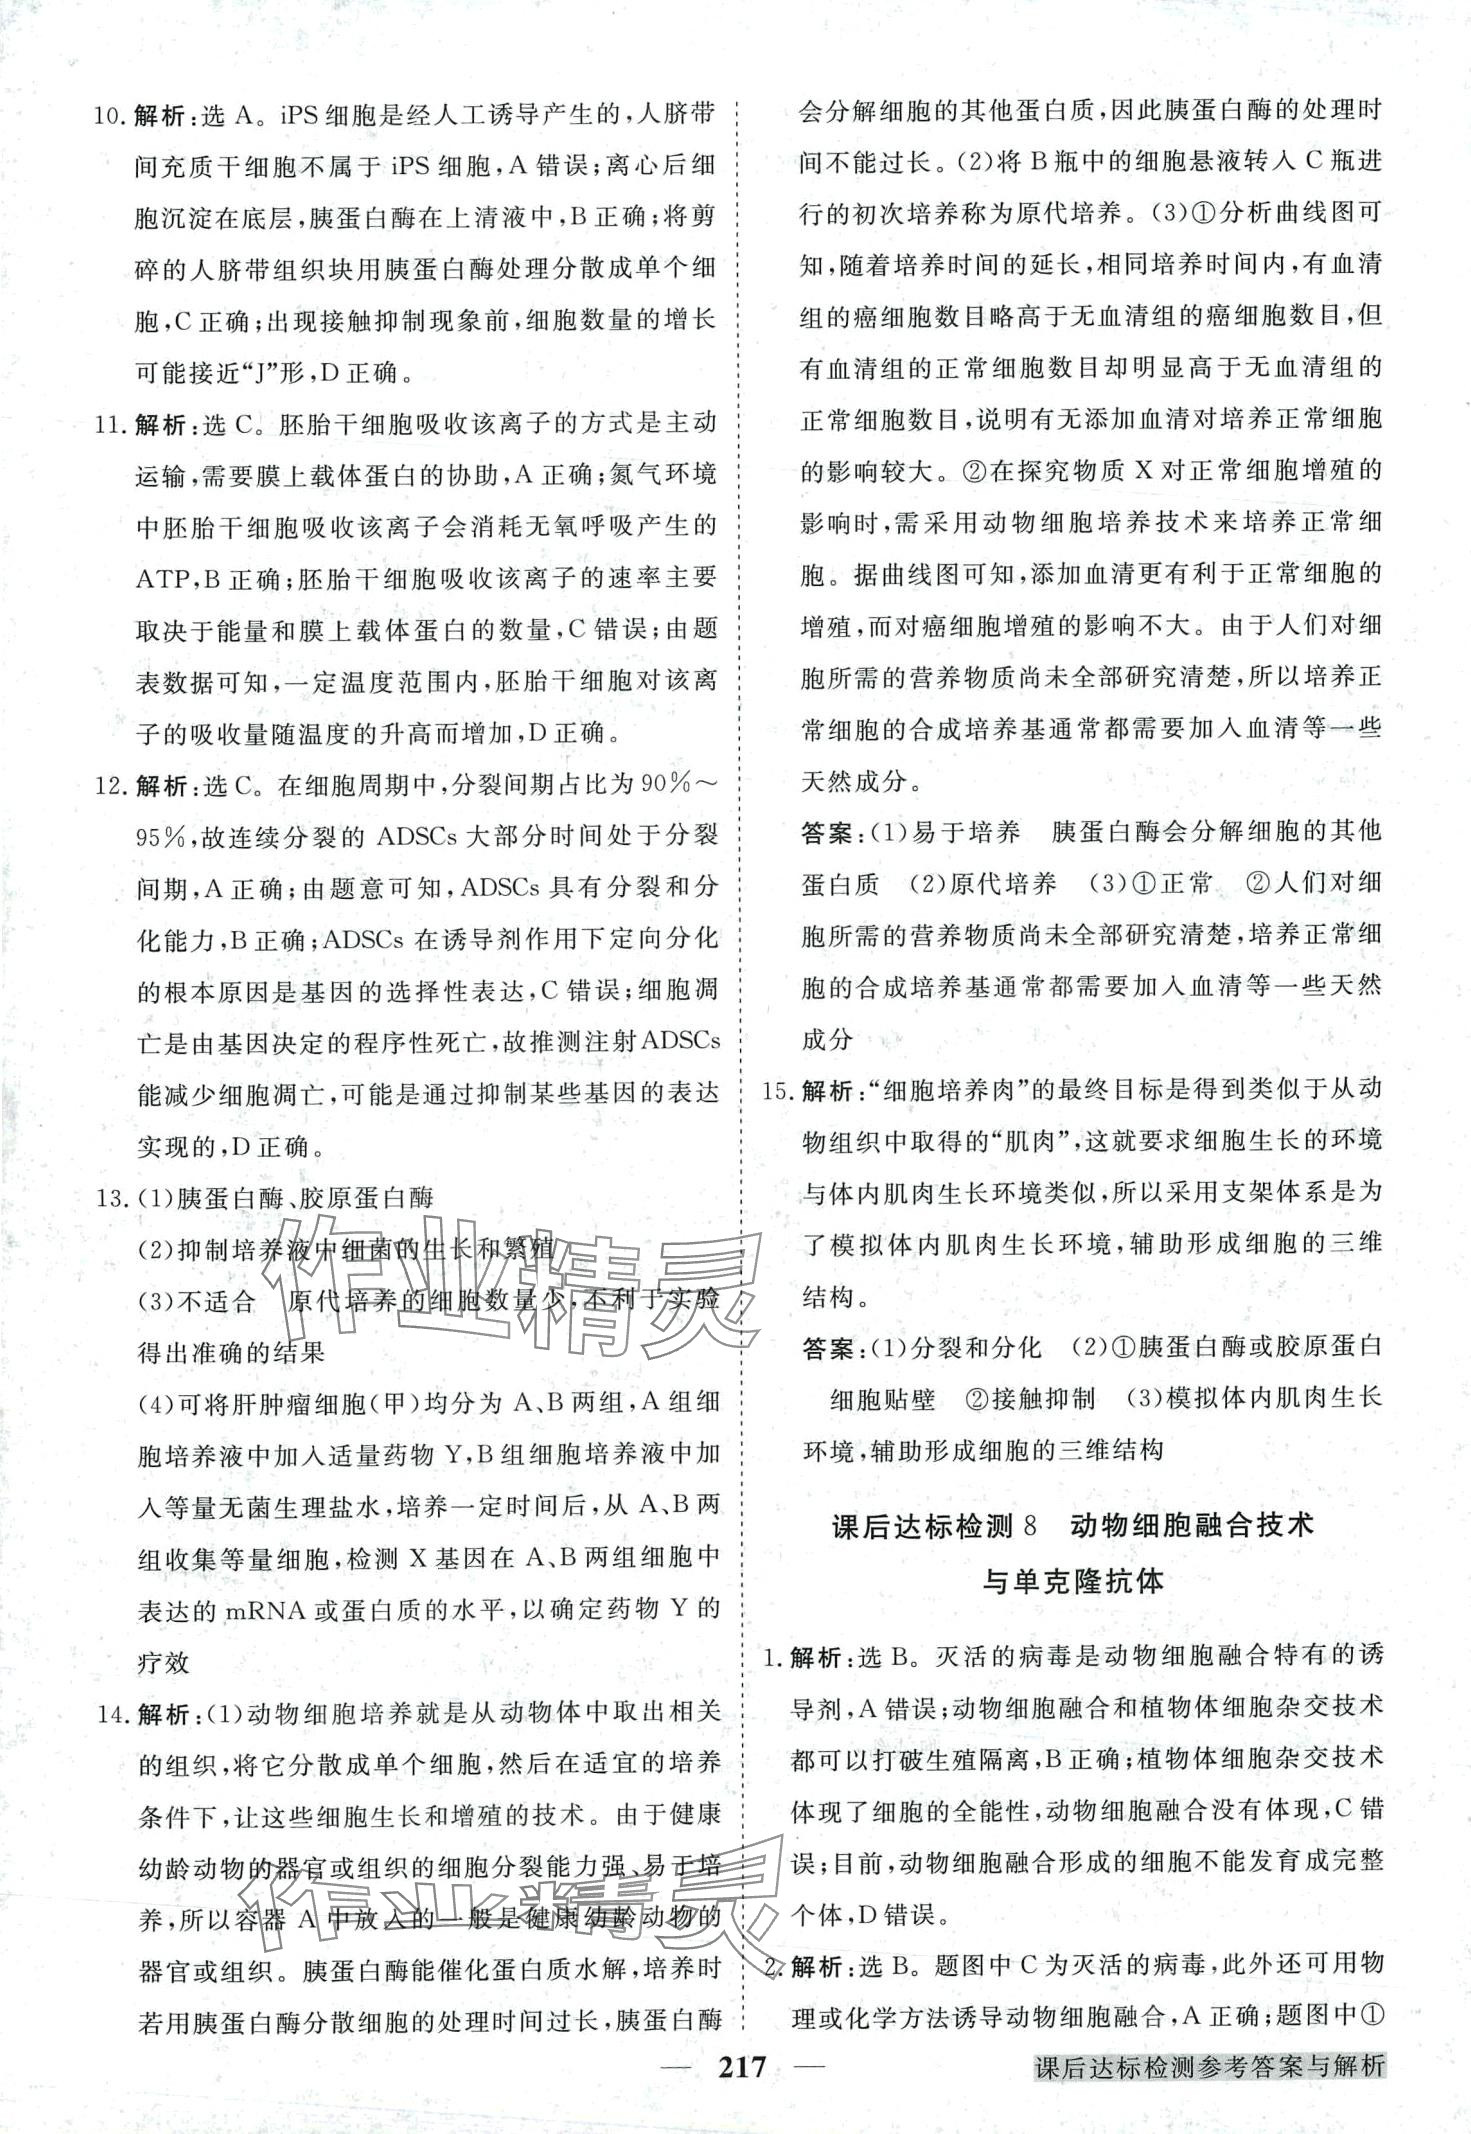 10. 解析:选 A。iPS 细胞是经人工诱导产生的,人脐带
间充质干细胞不属于 iPS 细胞,A 错误;离心后细
胞沉淀在底层,胰蛋白酶在上清液中,B 正确;将剪
碎的人脐带组织块用胰蛋白酶处理分散成单个细
胞,C 正确;出现接触抑制现象前,细胞数量的增长
可能接近“J”形,D 正确。
11. 解析:选 C。胚胎干细胞吸收该离子的方式是主动
运输,需要膜上载体蛋白的协助,A 正确;氮气环境
中胚胎干细胞吸收该离子会消耗无氧呼吸产生的
ATP,B 正确;胚胎干细胞吸收该离子的速率主要
取决于能量和膜上载体蛋白的数量,C 错误;由题
表数据可知,一定温度范围内,胚胎干细胞对该离
子的吸收量随温度的升高而增加,D 正确。
12. 解析:选 C。在细胞周期中,分裂间期占比为 90%～
95%,故连续分裂的 ADSCs 大部分时间处于分裂
间期,A 正确;由题意可知,ADSCs 具有分裂和分
化能力,B 正确;ADSCs 在诱导剂作用下定向分化
的根本原因是基因的选择性表达,C 错误;细胞凋
亡是由基因决定的程序性死亡,故推测注射 ADSCs
能减少细胞凋亡,可能是通过抑制某些基因的表达
实现的,D 正确。
13. (1)胰蛋白酶、胶原蛋白酶
(2)抑制培养液中细菌的生长和繁殖
(3)不适合　原代培养的细胞数量少,不利于实验
得出准确的结果
(4)可将肝肿瘤细胞(甲)均分为 A、B 两组,A 组细
胞培养液中加入适量药物 Y,B 组细胞培养液中加
入等量无菌生理盐水,培养一定时间后,从 A、B 两
组收集等量细胞,检测 X 基因在 A、B 两组细胞中
表达的 mRNA 或蛋白质的水平,以确定药物 Y 的
疗效
14. 解析:(1)动物细胞培养就是从动物体中取出相关
的组织,将它分散成单个细胞,然后在适宜的培养
条件下,让这些细胞生长和增殖的技术。由于健康
幼龄动物的器官或组织的细胞分裂能力强、易于培
养,所以容器 A 中放入的一般是健康幼龄动物的
器官或组织。胰蛋白酶能催化蛋白质水解,培养时
若用胰蛋白酶分散细胞的处理时间过长,胰蛋白酶
会分解细胞的其他蛋白质,因此胰蛋白酶的处理时
间不能过长。(2)将 B 瓶中的细胞悬液转入 C 瓶进
行的初次培养称为原代培养。(3)①分析曲线图可
知,随着培养时间的延长,相同培养时间内,有血清
组的癌细胞数目略高于无血清组的癌细胞数目,但
有血清组的正常细胞数目却明显高于无血清组的
正常细胞数目,说明有无添加血清对培养正常细胞
的影响较大。②在探究物质 X 对正常细胞增殖的
影响时,需采用动物细胞培养技术来培养正常细
胞。据曲线图可知,添加血清更有利于正常细胞的
增殖,而对癌细胞增殖的影响不大。由于人们对细
胞所需的营养物质尚未全部研究清楚,所以培养正
常细胞的合成培养基通常都需要加入血清等一些
天然成分。
答案:(1)易于培养　胰蛋白酶会分解细胞的其他
蛋白质　(2)原代培养　(3)①正常　②人们对细
胞所需的营养物质尚未全部研究清楚,培养正常细
胞的合成培养基通常都需要加入血清等一些天然
成分
15. 解析:“细胞培养肉”的最终目标是得到类似于从动
物组织中取得的“肌肉”,这就要求细胞生长的环境
与体内肌肉生长环境类似,所以采用支架体系是为
了模拟体内肌肉生长环境,辅助形成细胞的三维
结构。
答案:(1)分裂和分化　(2)①胰蛋白酶或胶原蛋白
　细胞贴壁　②接触抑制　(3)模拟体内肌肉生长
环境,辅助形成细胞的三维结构
课后达标检测 8　动物细胞融合技术
与单克隆抗体
1. 解析:选 B。灭活的病毒是动物细胞融合特有的诱
导剂,A 错误;动物细胞融合和植物体细胞杂交技术
都可以打破生殖隔离,B 正确;植物体细胞杂交技术
体现了细胞的全能性,动物细胞融合没有体现,C 错
误;目前,动物细胞融合形成的细胞不能发育成完整
个体,D 错误。
2. 解析:选 B。题图中 C 为灭活的病毒,此外还可用物
理或化学方法诱导动物细胞融合,A 正确;题图中①
— 217 —
课后达标检测参考答案与解析
作业精灵
作业精灵